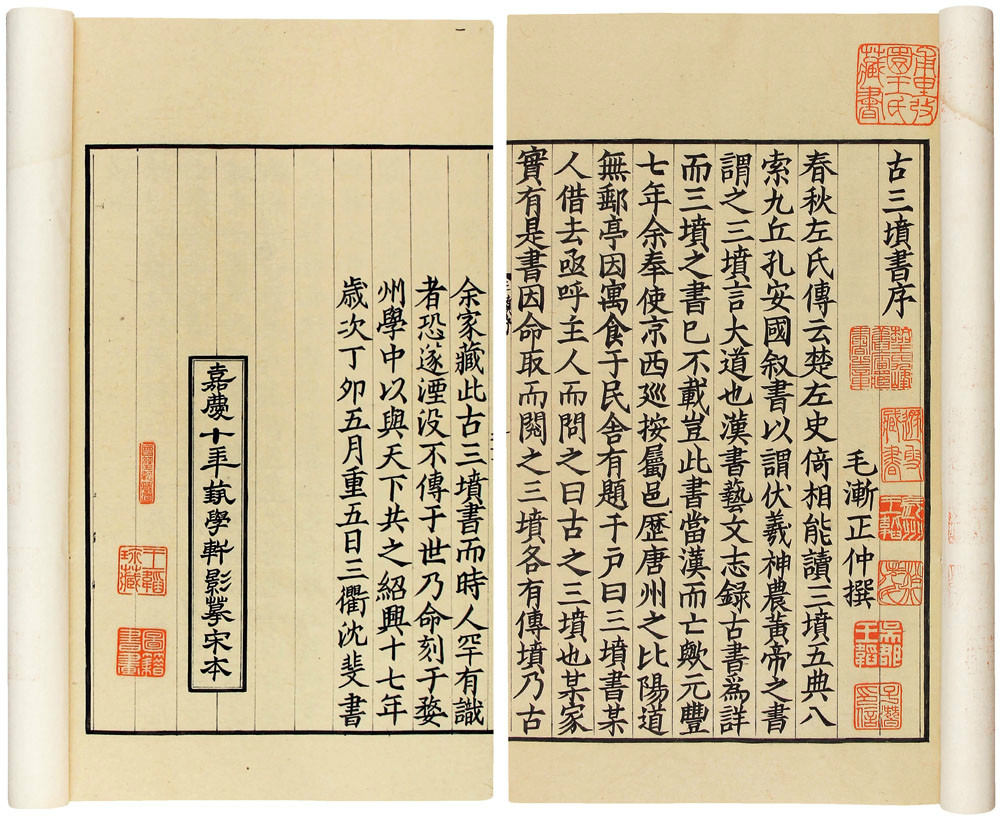 甫里弢
園王氏
藏書
古三墳書序
毛漸正仲撰
遯叟
藏書
吳郡
王韜
春秋左氏傳云楚左史倚相能讀三墳五典八
索九丘孔安國叙書以謂伏羲神農黃帝之書
謂之三墳言大道也漢書藝文志錄古書爲詳
而三墳之書已不載豈此書當漢而亡歟元豐
七年余奉使京西廵按屬邑歷唐州之比陽道
無郵亭因寓食于民舍有題于户曰三墳書某
人借去亟呼主人而問之曰古之三墳也某家
實有是書因命取而閱之三墳各有傳墳乃古
余家藏此古三墳書而時人罕有識
者恐遂湮没不傳于世乃命刻于婺
州學中以與天下共之紹興十七年
歲次丁卯五月重五日三衢沈斐書
嘉慶十年蓺學軒影摹宋本
王韜
珍藏
圖籍
書畫